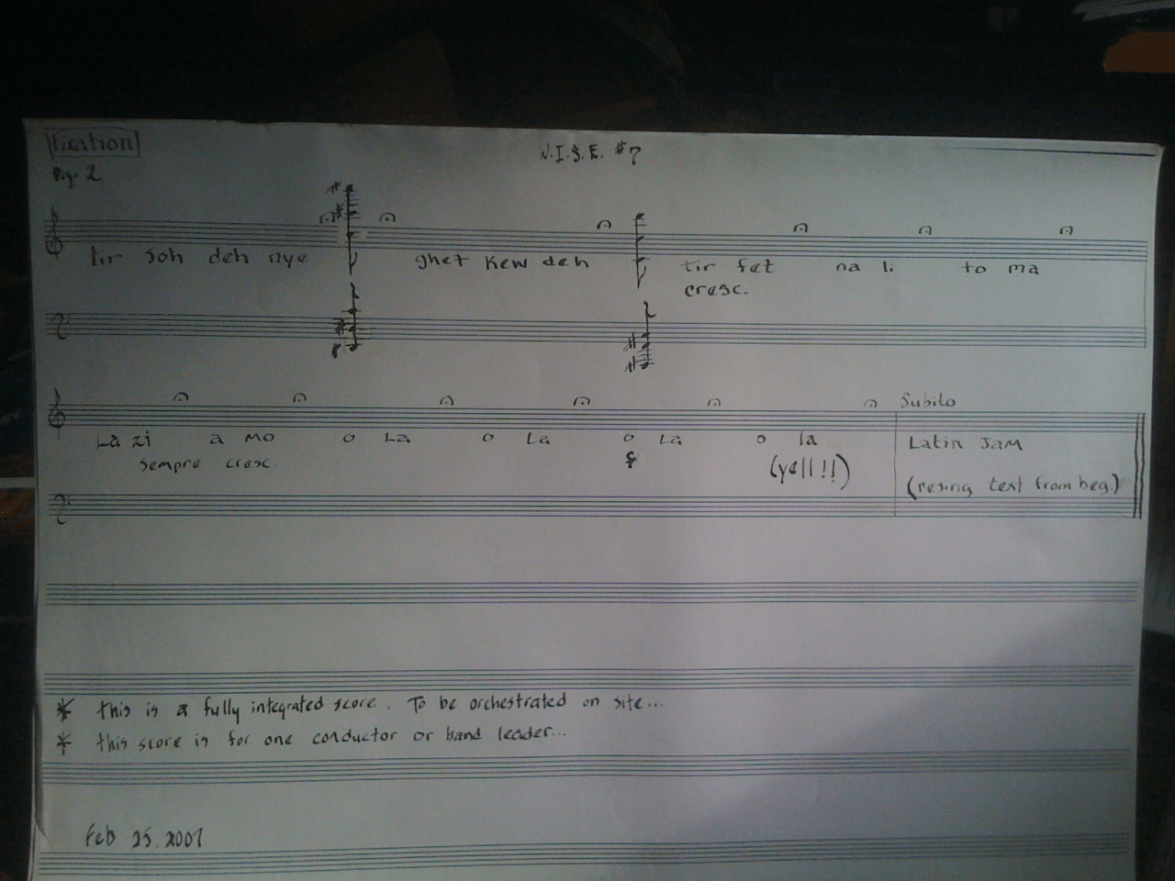 fixation
Pg. 2
N.I.S.E. #7
tir soh deh nye ghet kew deh tir fet na li to ma
cresc.
Subito
La zi a mo o La o La o La o la Latin Jam
sempre cresc. f (yell!!)
(resing text from beg.)
* this is a fully integrated score. To be orchestrated on site...
* this score is for one conductor or band leader...
Feb 25. 2007